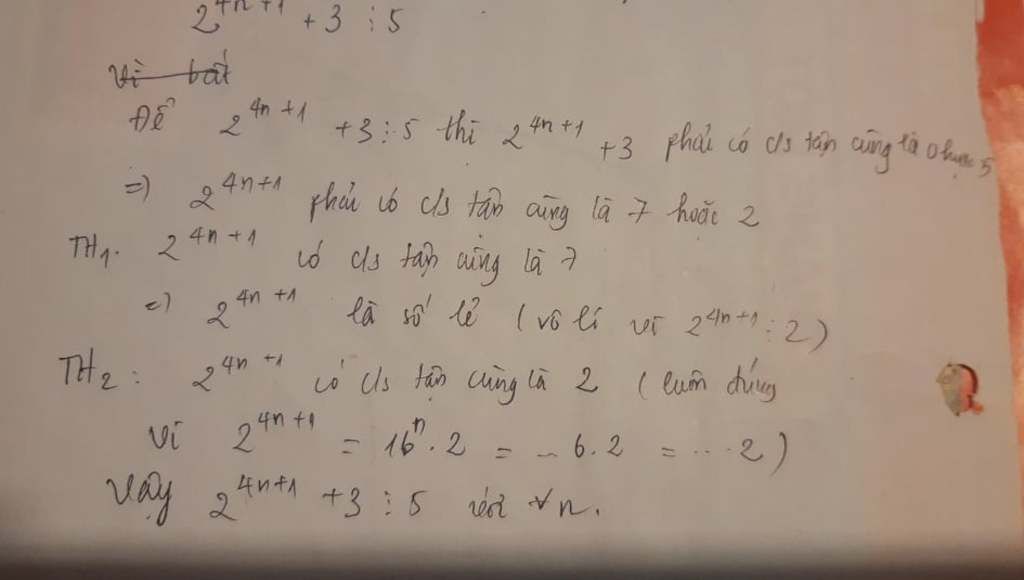 2^{4n+1} + 3 ⋮ 5
Vì bất
Để 2^{4n+1} + 3 ⋮ 5 thì 2^{4n+1} + 3 phải có c/s tận cùng là 0 hoặc 5
=) 2^{4n+1} phải có c/s tận cùng là 7 hoặc 2
TH1. 2^{4n+1} có c/s tận cùng là 7
=) 2^{4n+1} là số lẻ (vô lí vì 2^{4n+1} ⋮ 2)
TH2: 2^{4n+1} có c/s tận cùng là 2 (luôn đúng
vì 2^{4n+1} = 16^n . 2 = ...6.2 = ...2)
Vậy 2^{4n+1} + 3 ⋮ 5 với ∀n.